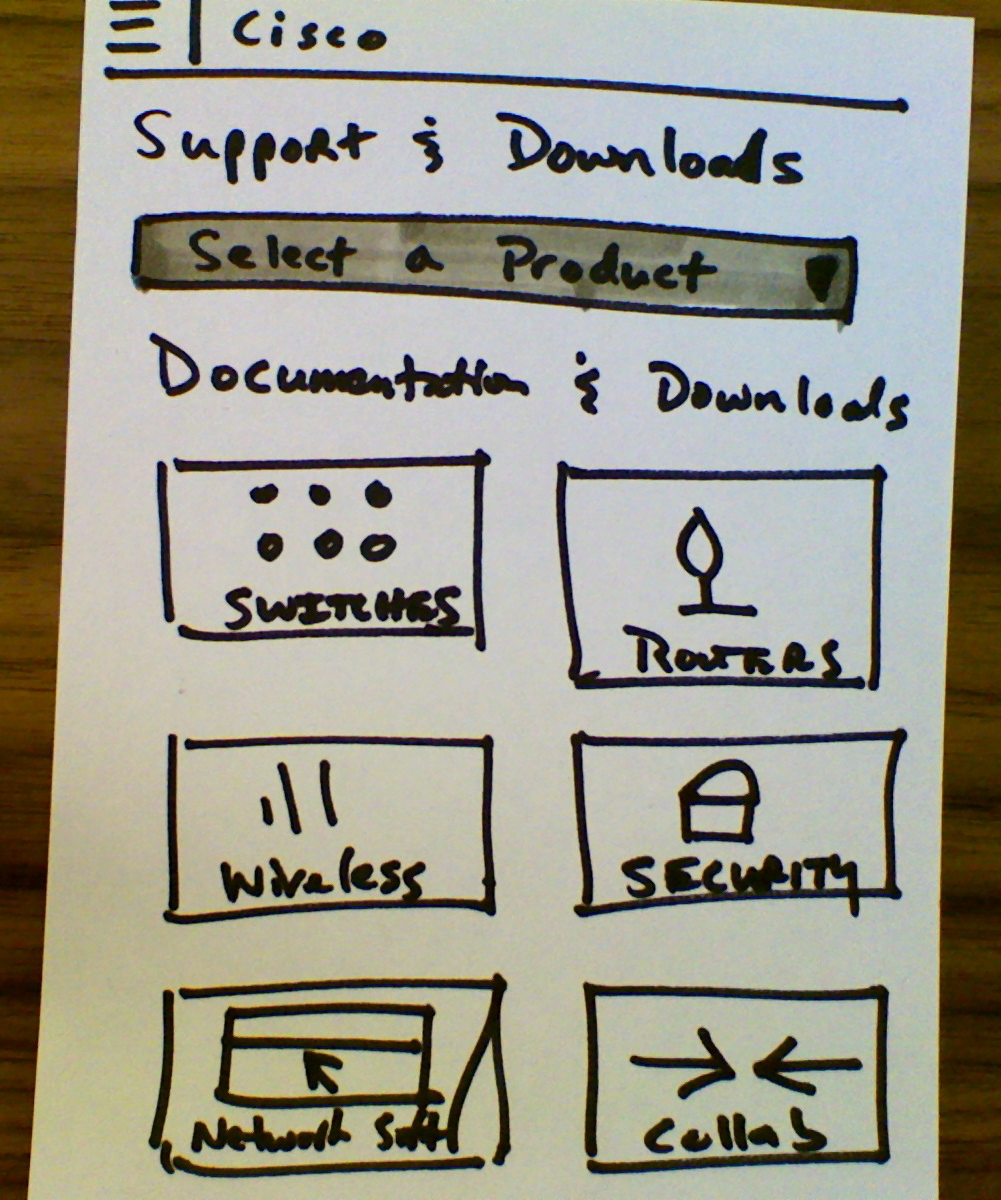 Cisco
Support & Downloads
Select a Product
Documentation & Downloads
SWITCHES
ROUTERS
Wireless
SECURITY
Network Soft
Collab